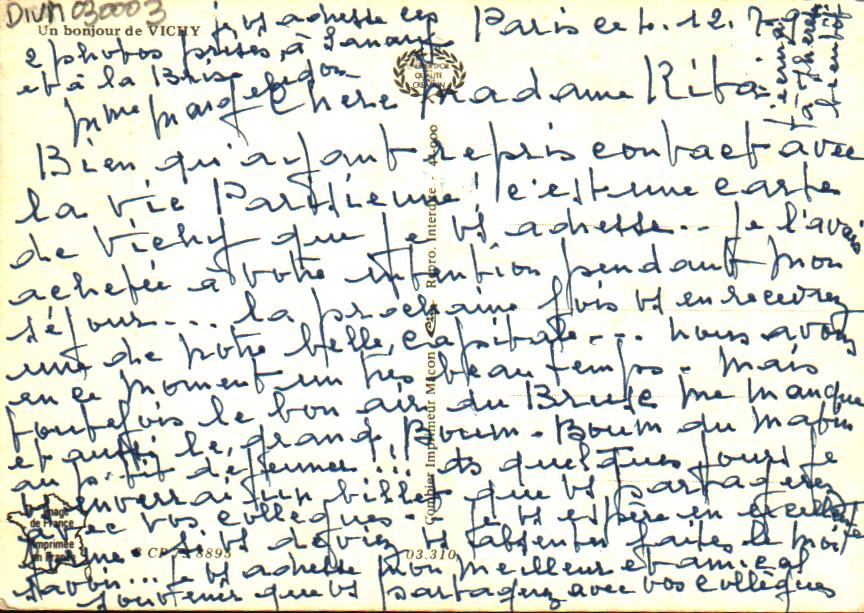 DIVM 030003
Un bonjour de VICHY
je vs adresse ces
2 photos prises à Sanary
et à la Brise
Paris ce 4.12.79
Chère Madame Rita
Bien qu'ayant repris contact avec
la vie Parisienne! c'est une carte
de Vichy que je vs adresse... je l'avais
achetée à votre intention pendant mon
séjour... la prochaine fois vs en recevrez
une de notre belle capitale... nous avons
en ce moment un très beau temps - mais
toutefois le bon air du Brusc me manque
et aussi le grand Boum-Boum du matin
au p'tit déjeuner!... ds quelques jours je
vs enverrai un billet que vs partagerez
avec vos collègues... je vs espère en excellente
forme - si vs deviez vs absenter faites le moi
savoir... je vs adresse mon meilleur et amical
souvenir que vs partagerez avec vos collègues
bientôt
QUALITÉ
Combier Imprimeur Mâcon
Repro. Interdite
Image
de France
Imprimée
en France
CP 8895
03.310